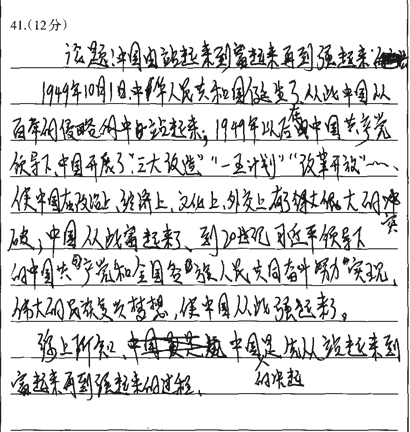 41.(12分)
论题:中国由站起来到富起来再到强起来
1949年10月1日中华人民共和国诞生了,从此中国从
百年的侵略的中站起来;1949年以后在中国共产党
领导下,中国开展了"三大改造""一五计划""改革开放"……、
使中国在政治上、经济上、文化上、外交上有了伟大的突
破,中国从此富起来了、到20世纪习近平领导下
的中国共产党和全国各族人民共同奋斗努力"实现,
伟大的民族复兴梦想,使中国从此强起来了。
综上所知、中国 中国是先从站起来到
富起来再到强起来的过程、的崛起